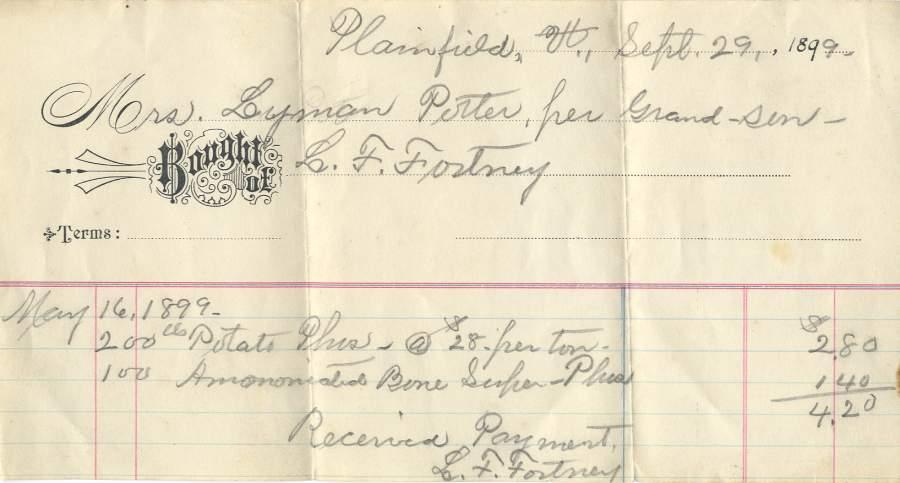 Plainfield, Vt., Sept. 29, 1899-
Mrs. Lyman Porter, per Grand-son-
Bought of L. F. Fortney
Terms:
May 16, 1899-
200 lbs Potato Phos- @ $28-per ton- $2.80
100 Amononiated Bone Super-Phos 1 40
4.20
Received Payment,
L. F. Fortney